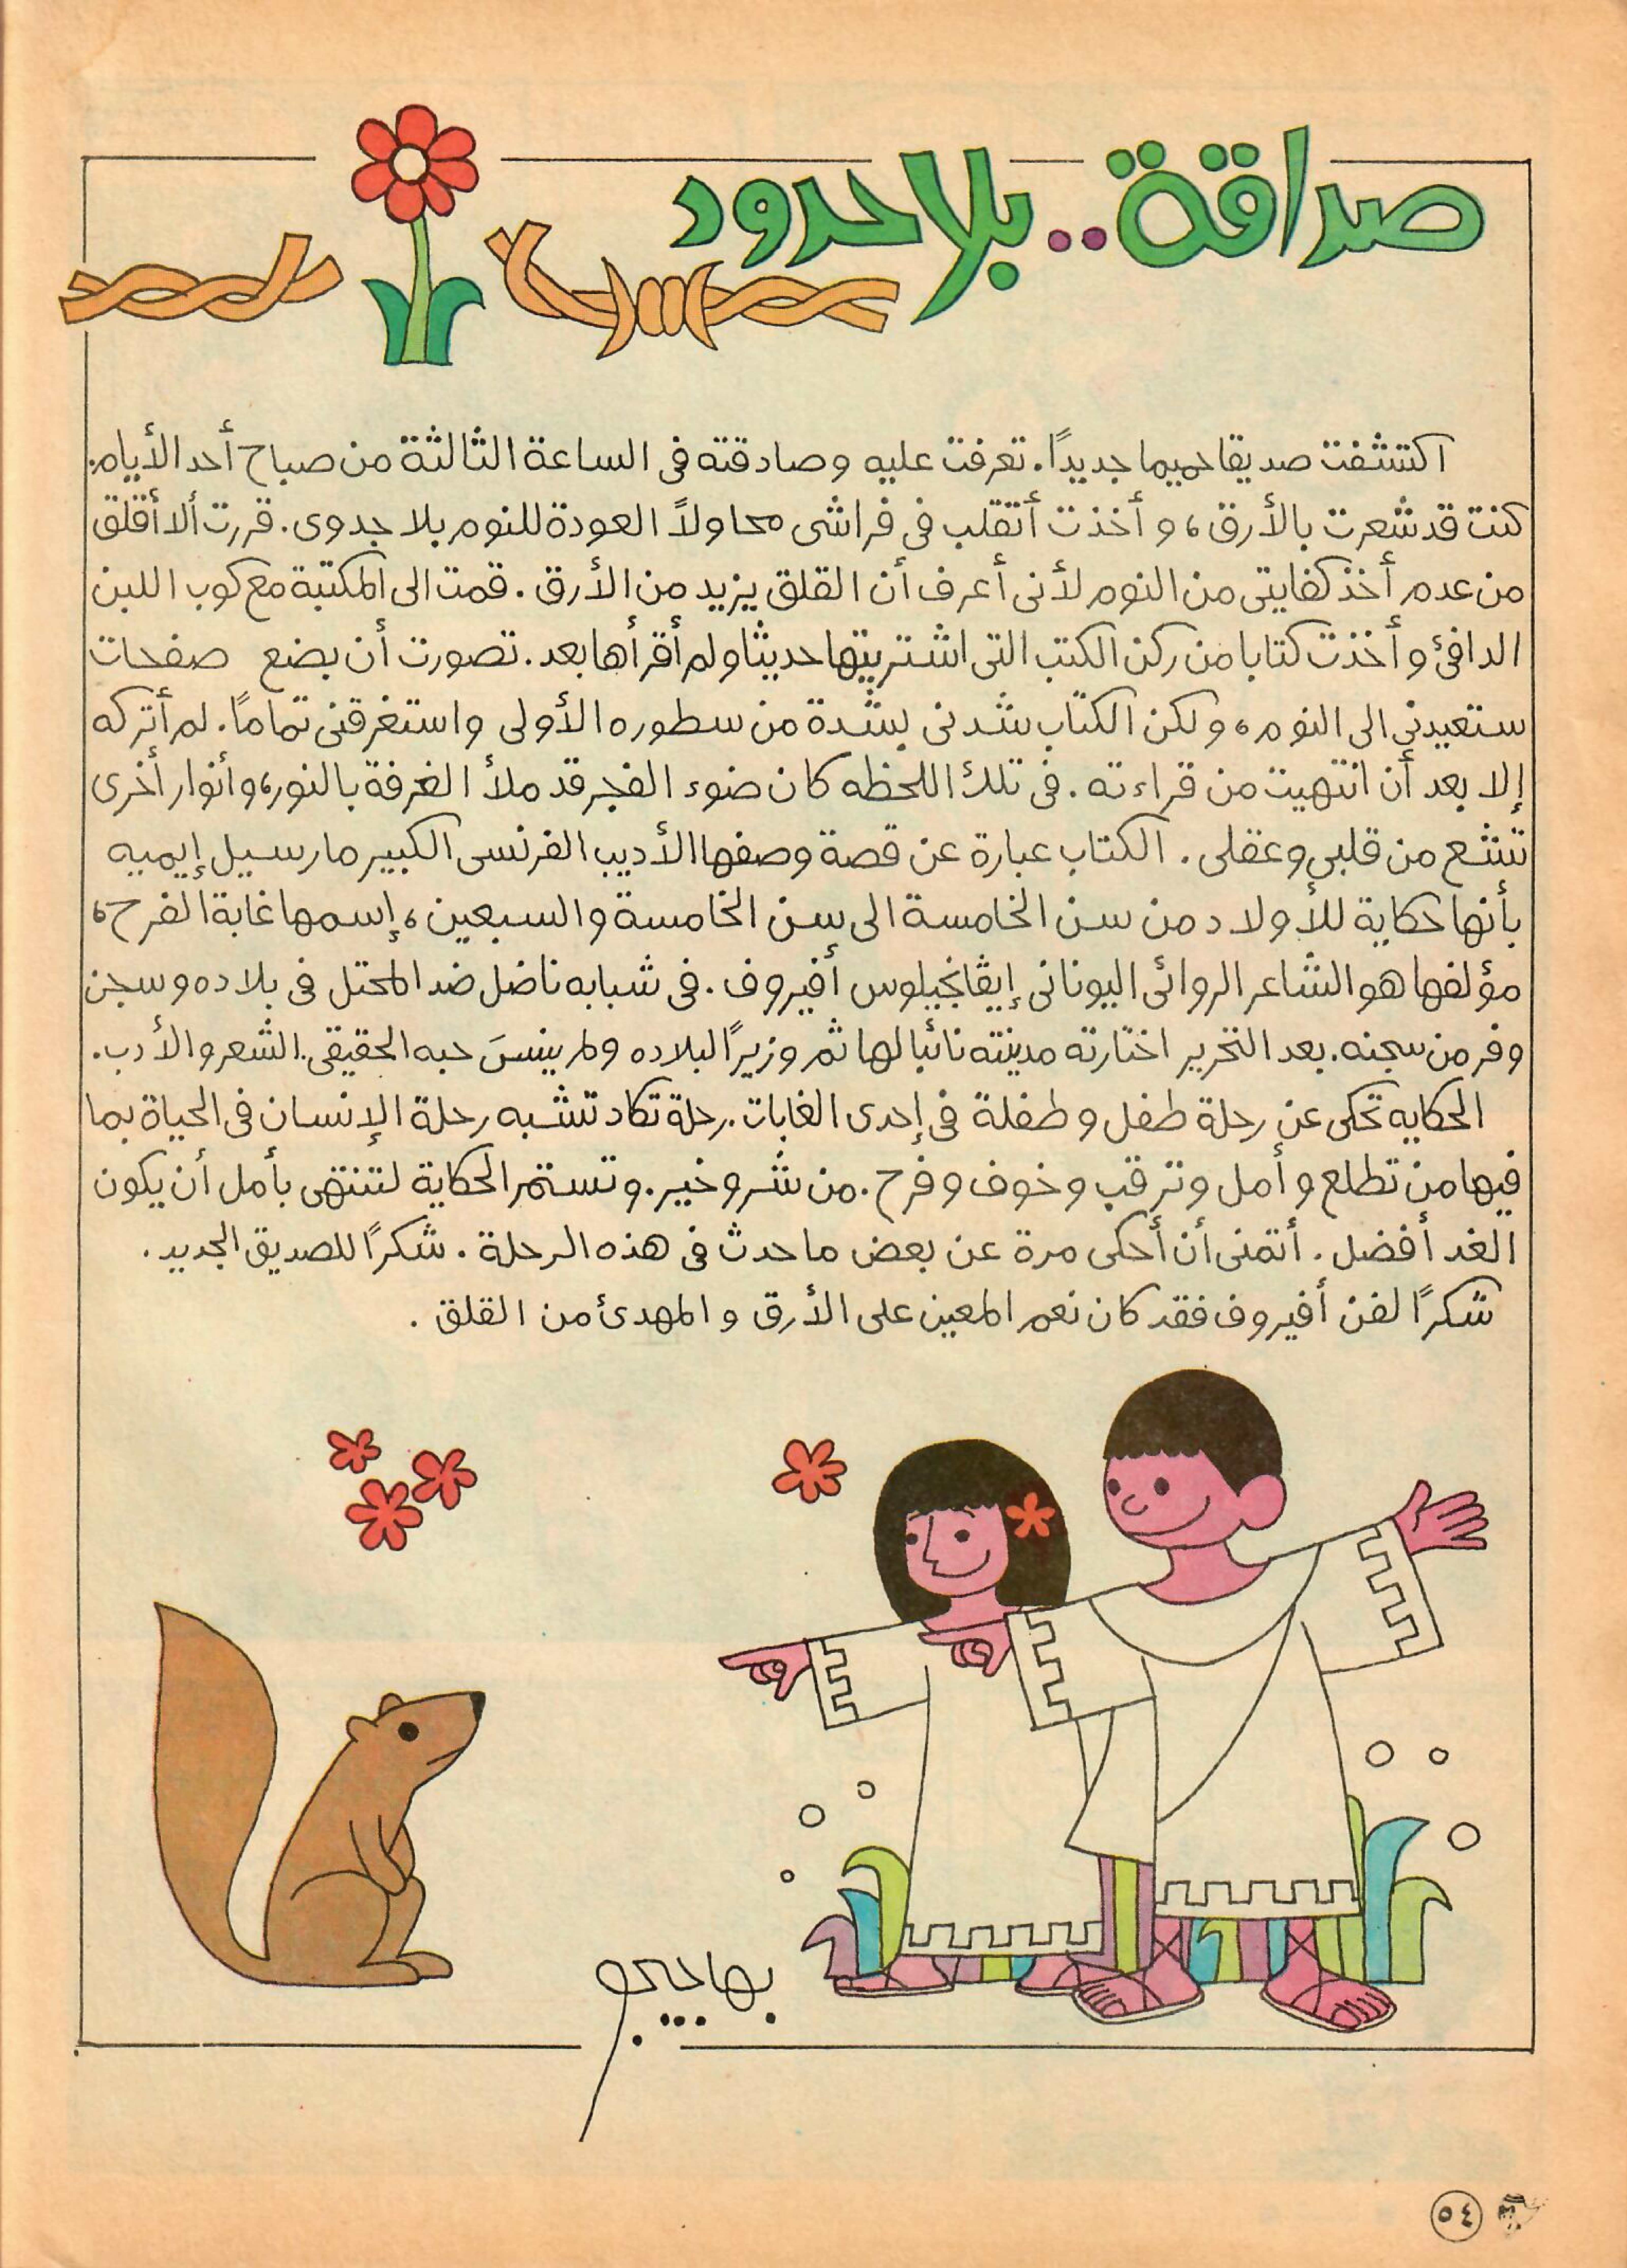 صداقة.. بلا حدود
اكتشفت صديقا حميما جديدًا. تعرفت عليه وصادقته فى الساعة الثالثة من صباح أحد الأيام.
كنت قد شعرت بالأرق، وأخذت أتقلب فى فراشى محاولاً العودة للنوم بلا جدوى. قررت ألا أقلق
من عدم أخذ كفايتى من النوم لأنى أعرف أن القلق يزيد من الأرق. قمت الى المكتبة مع كوب اللبن
الدافئ وأخذت كتابا من ركن الكتب التى اشتريتها حديثا ولم أقرأها بعد. تصورت أن بضع صفحات
ستعيدنى الى النوم، ولكن الكتاب شدنى بشدة من سطوره الأولى واستغرقنى تمامًا. لم أتركه
إلا بعد أن انتهيت من قراءته. فى تلك اللحظه كان ضوء الفجر قد ملأ الغرفة بالنور، وأنوار أخرى
تشع من قلبى وعقلى. الكتاب عبارة عن قصة وصفها الأديب الفرنسى الكبير مارسيل إيميه
بأنها حكاية للأولاد من سن الخامسة الى سن الخامسة والسبعين، إسمها غابة الفرح،
مؤلفها هو الشاعر الروائى اليونانى إيڤانجيلوس أفيروف. فى شبابه ناضل ضد المحتل فى بلاده وسجن
وفر من سجنه. بعد التحرير اختارته مدينته نائبا لها ثم وزيرًا لبلاده ولم ينسَ حبه الحقيقى.. الشعر والأدب.
الحكايه تحكى عن رحلة طفل وطفلة فى إحدى الغابات. رحلة تكاد تشبه رحلة الإنسان فى الحياة بما
فيها من تطلع وأمل وترقب وخوف وفرح. من شر وخير. وتستمر الحكاية لتنتهى بأمل أن يكون
الغد أفضل. أتمنى أن أحكى مرة عن بعض ما حدث فى هذه الرحلة. شكرًا للصديق الجديد.
شكرًا لفن أفيروف فقد كان نعم المعين على الأرق والمهدئ من القلق.
بهاجيجو
٥٤